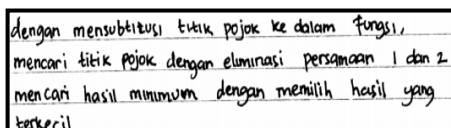 dengan mensubtitusi titik pojok ke dalam fungsi,
mencari titik pojok dengan eliminasi persamaan 1 dan 2
mencari hasil minimum dengan memilih hasil yang
terkecil